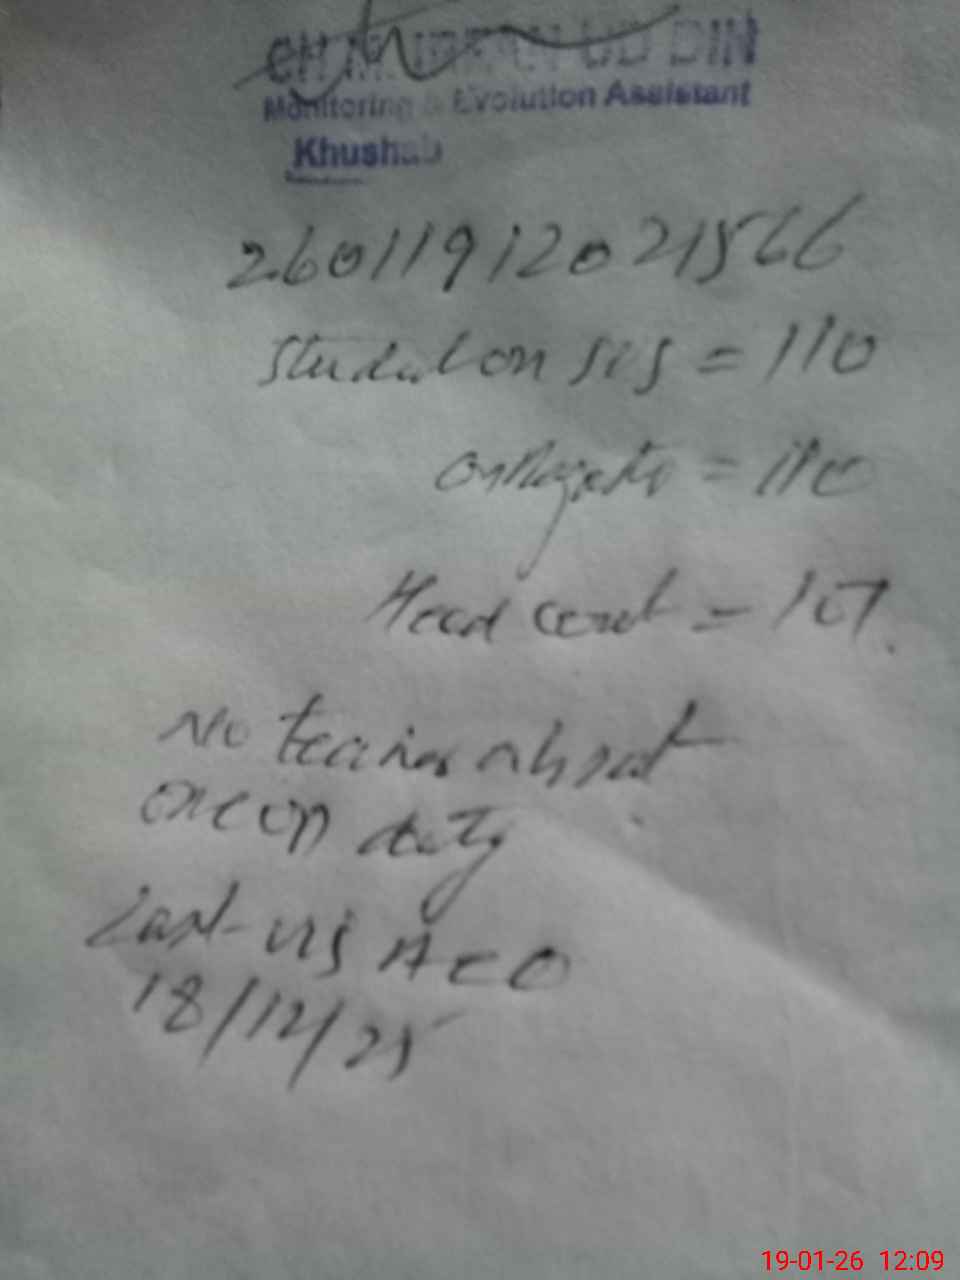 CH M. IRFAN UD DIN
Monitoring & Evolution Assistant
Khushab
26011912021566
Student on SIS = 110
on Register = 110
Head count = 107.
No teacher absent
one on duty
Last vis AEO
18/12/25
19-01-26 12:09